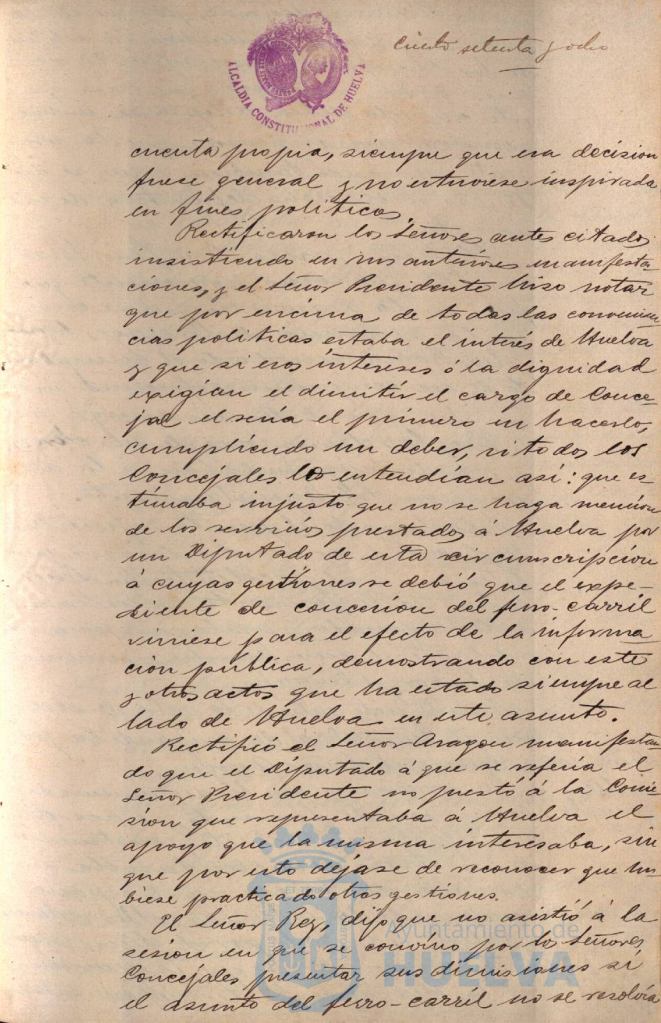 ciento setenta y ocho
ALCALDIA CONSTITUCIONAL DE HUELVA
cuenta propia, siempre que esa decision
fuese general y no estuviese inspirada
en fines politicos.
Rectificaron los Señores antes citados
insistiendo en sus anteriores manifesta-
ciones, y el Señor Presidente hizo notar
que por encima de todas las convenien-
cias politicas estaba el interés de Huelva
y que si esos intereses ó la dignidad
exigian el dimitir el cargo de Conce-
jal el seria el primero en hacerlo,
cumpliendo un deber, si todos los
Concejales lo entendian así: que es-
timaba injusto que no se haga mencion
de los servicios prestados á Huelva por
un Diputado de esta circunscripcion
á cuyas gestiones se debió que el expe-
diente de concesion del ferro-carril
viniese para el efecto de la informa
cion pública, demostrando con este
y otros actos que ha estado siempre al
lado de Huelva en este asunto.
Rectificó el Señor Aragon manifestan-
do que el Diputado á que se referia el
Señor Presidente no prestó á la Comi-
sion que representaba á Huelva el
apoyo que la misma interesaba, sin
que por esto dejase de reconocer que hu-
biese practicado otras gestiones.
El Señor Rey, dijo que no asistió á la
sesion en que se convino por los Señores
Concejales presentar sus dimisiones si
el asunto del ferro-carril no se resolvia
Ayuntamiento de
HUELVA